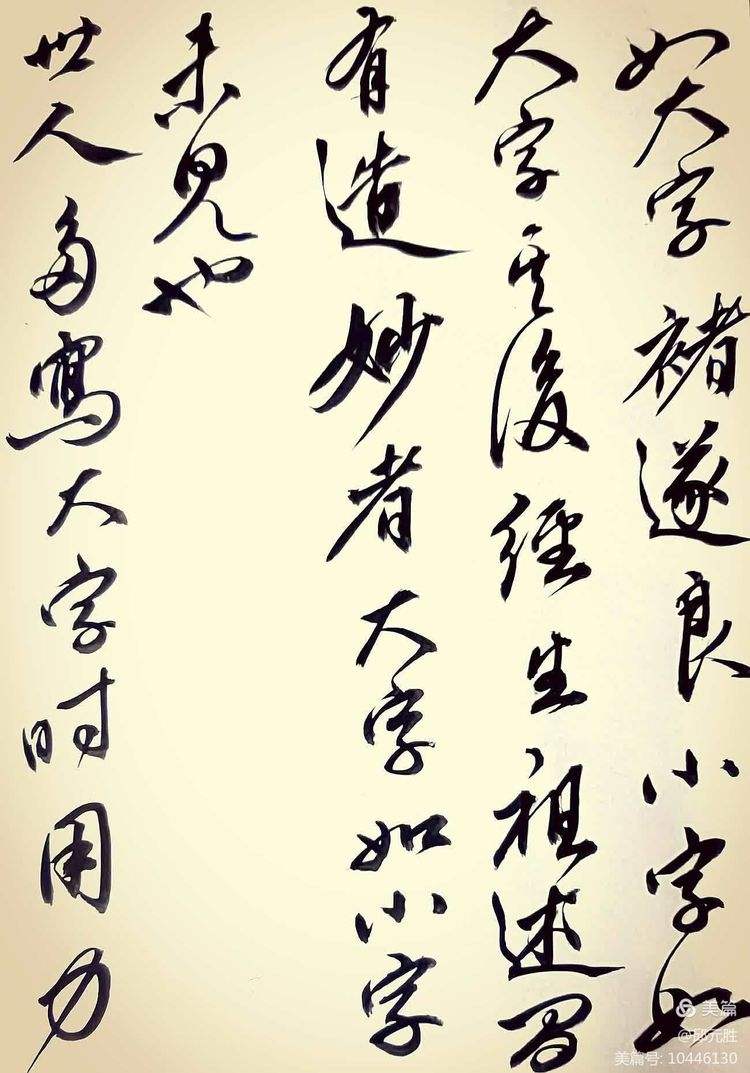 如大字褚遂良小字如
大字其後經生祖述間
有造妙者大字如小字
未見也
世人多寫大字時用力
美篇
@邵元胜
美篇号: 10446130